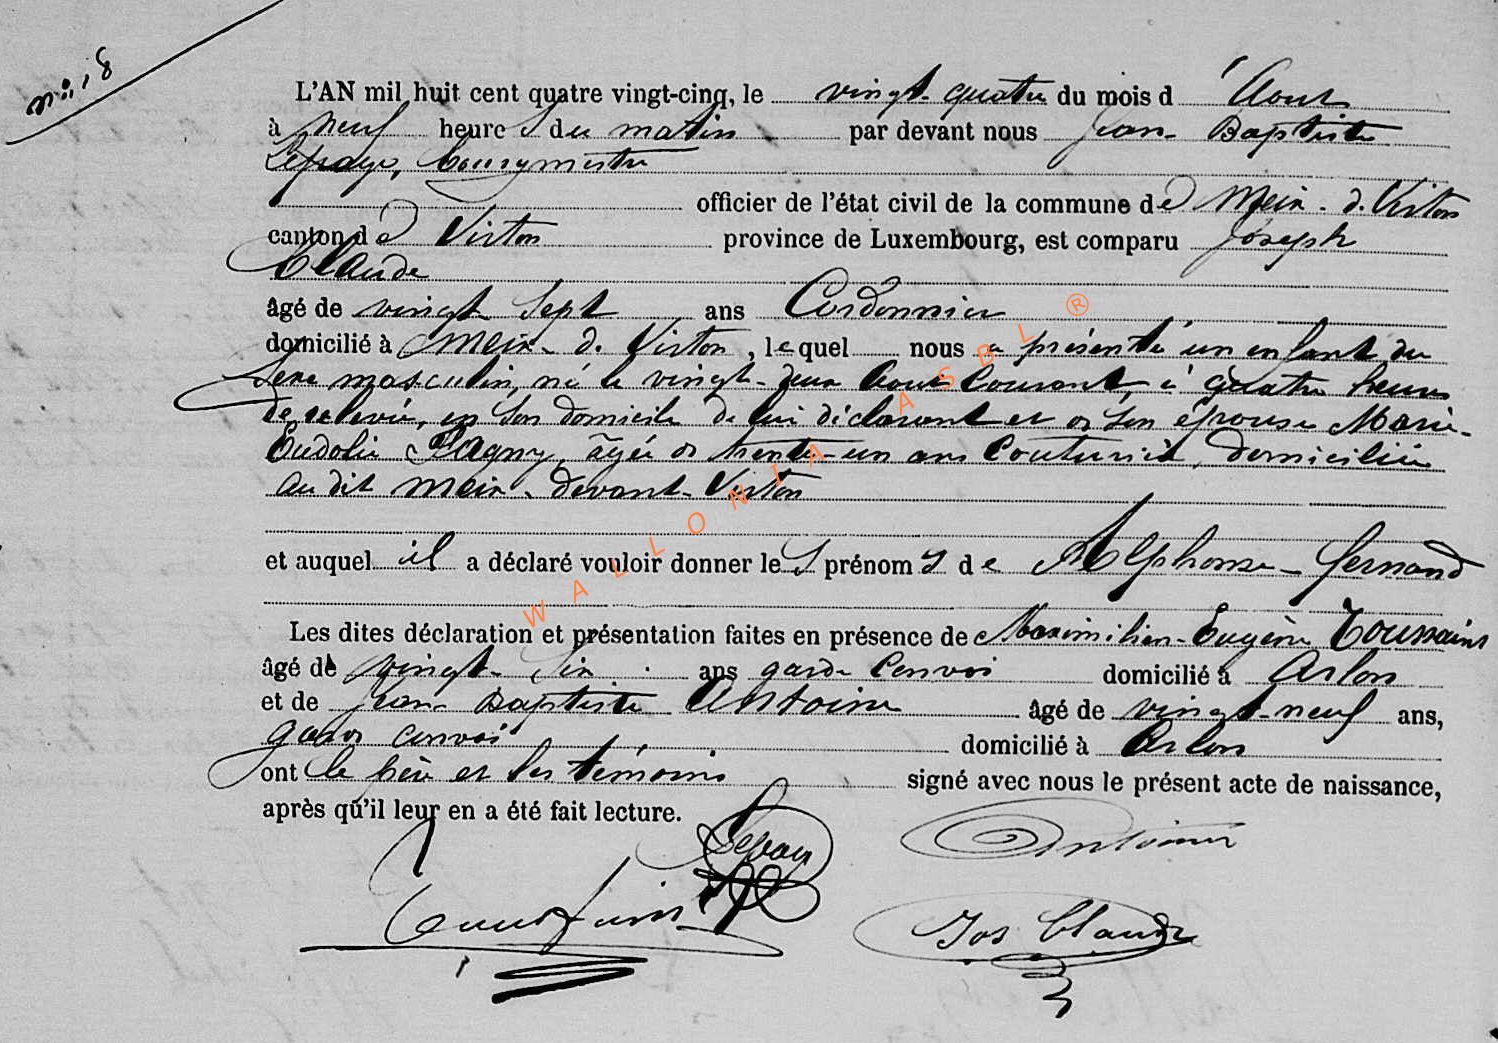 n° 18
L'AN mil huit cent quatre vingt-cinq, le vingt-quatre du mois d'Aout
à neuf heures du matin par devant nous Jean-Baptiste
Lepage, bourgmestre
officier de l'état civil de la commune de Meix-d.Virton
canton de Virton province de Luxembourg, est comparu Joseph
Claude
âgé de vingt sept ans Cordonnier
domicilié à Meix-d. Virton, lequel nous a présenté un enfant du
sexe masculin, né le vingt-deux Aout courant, à quatre heures
de relevée, en son domicile de lui déclarant et de son épouse Marie-
Eudolie Plagny, âgée de trente-un ans Couturière, domiciliée
au dit Meix-devant-Virton
et auquel il a déclaré vouloir donner les prénoms de Alphonse-Fernand
Les dites déclaration et présentation faites en présence de Maximilien-Eugène Toussaint
âgé de vingt-six ans garde convoi domicilié à Arlon
et de Jean-Baptiste Antoine âgé de vingt-neuf ans,
garde convoi domicilié à Arlon
ont le père et les témoins signé avec nous le présent acte de naissance,
après qu'il leur en a été fait lecture.
Lepage Antoine
Toussaint Jos Claude
WALLONIA ASBL ®